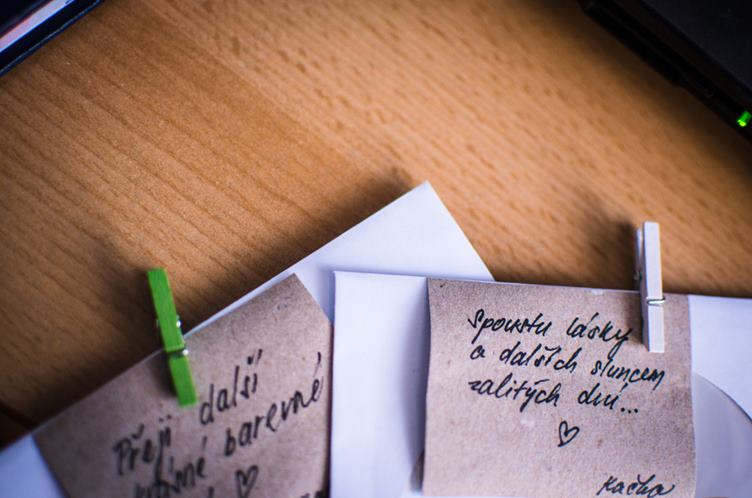 Přeji další
krásné barevné
Spoustu lásky
a dalších sluncem
zalitých dní...
Kačka